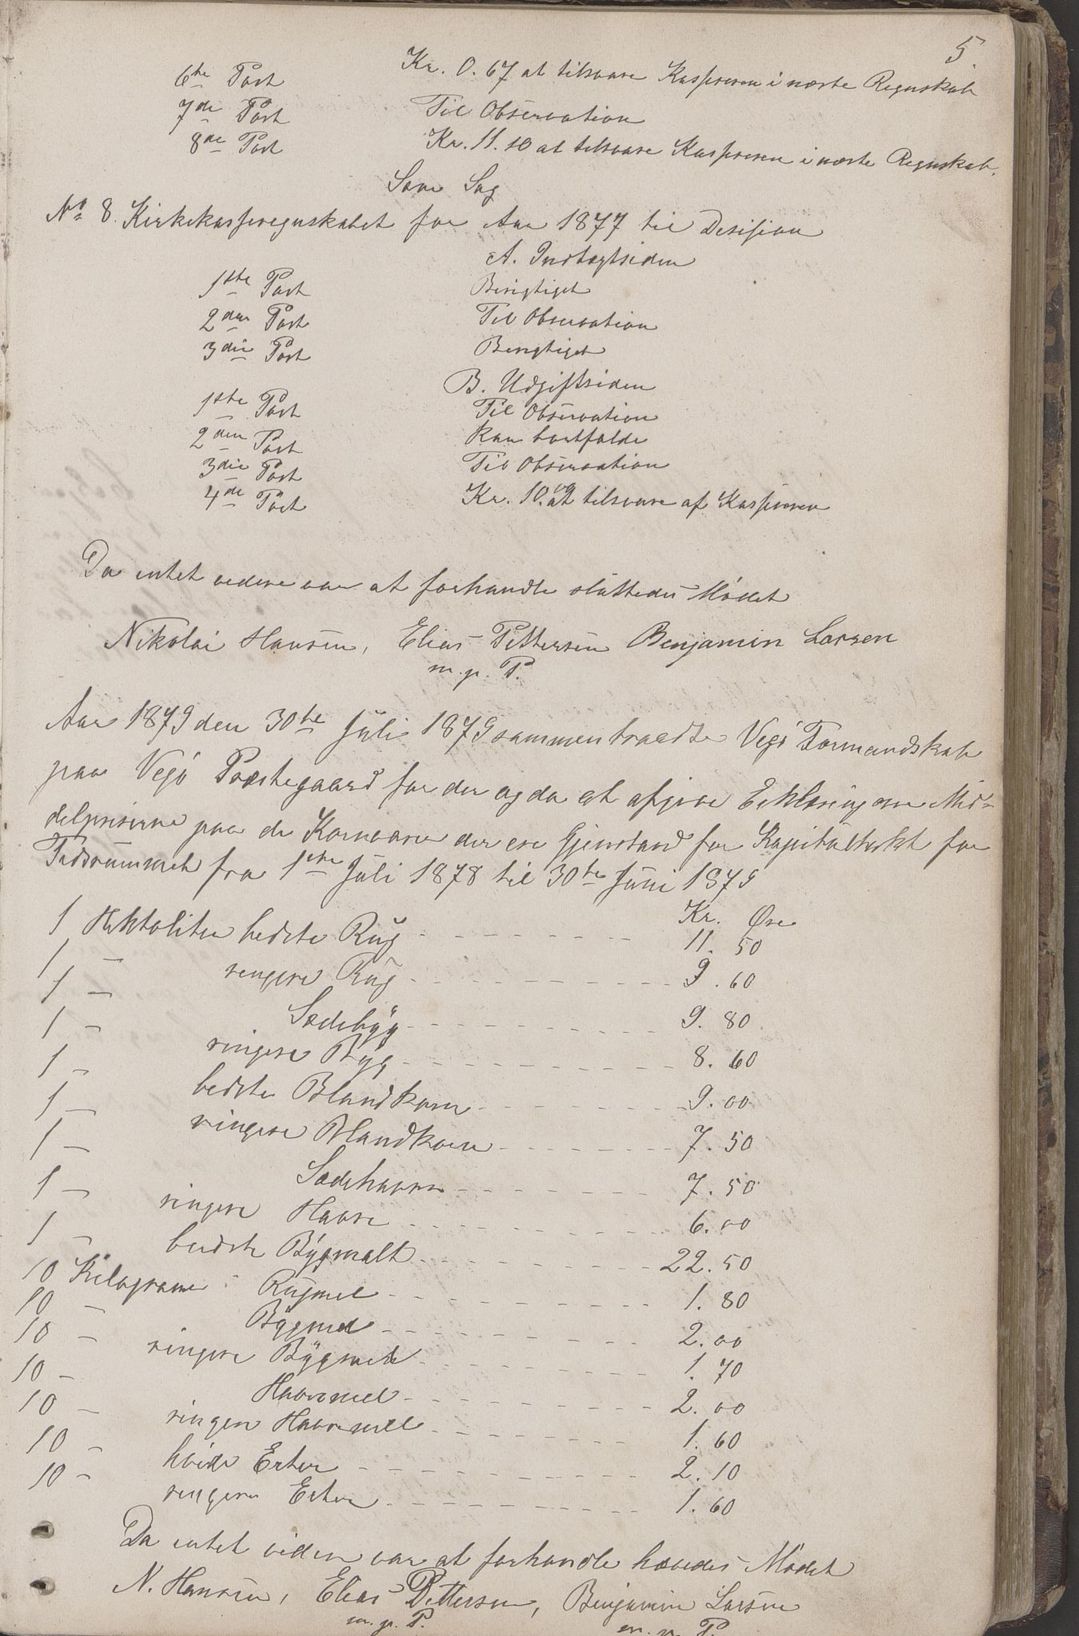 5
6te Post Kr. 0.67 at tilsvare Kassereren i næste Regnskab
7de Post Til Observation
8de Post Kr. 11.10 at tilsvare Kassereren i næste Regnskab.
Som Sag
No 8. Kirkekasseregnskabet for Aar 1877 til Desision
A. Indtægtsiden
1ste Post Berigtiget
2den Post Til Observation
3die Post Berigtiget
B. Udgiftsiden
1ste Post Til Observation
2den Post Kan bortfalde
3die Post Til Observation
4de Post Kr. 10. at tilsvare af Kassereren
Da intet videre var at forhandle sluttedes Mødet
Nikolai Hansen, Elias Pettersen Benjamin Larsen
m. p. P.
Aar 1879 den 30te Juli 1879 sammentraadte Vegø Formandskab
paa Vegø Præstegaard for der og da at afgive Erklæring om Mid-
delpriserne paa de Kornvarer der ere Gjenstand for Kapitultaxt for
Tidsrummet fra 1ste Juli 1878 til 30te Juni 1879
Kr. Øre
1 Hektoliter bedste Rug 11. 50
1 — ringere Rug 9. 60
1 — Sædebyg 9. 80
1 — ringere Byg 8. 60
1 — bedste Blandkorn 9. 00
1 — ringere Blandkorn 7. 50
1 — Sædehavre 7. 50
1 — ringere Havre 6. 00
1 — bedste Bygmalt 22. 50
10 Kilogram Rugmel 1. 80
10 — Bygmel 2. 00
10 — ringere Bygmel 1. 70
10 — Havremel 2. 00
10 — ringere Havremel 1. 60
10 — hvide Erter 2. 10
10 — ringere Erter 1. 60
Da intet videre var at forhandle hævedes Mødet
N. Hansen, Elias Pettersen, Benjamin Larsen
m. p. P. m. p. P.